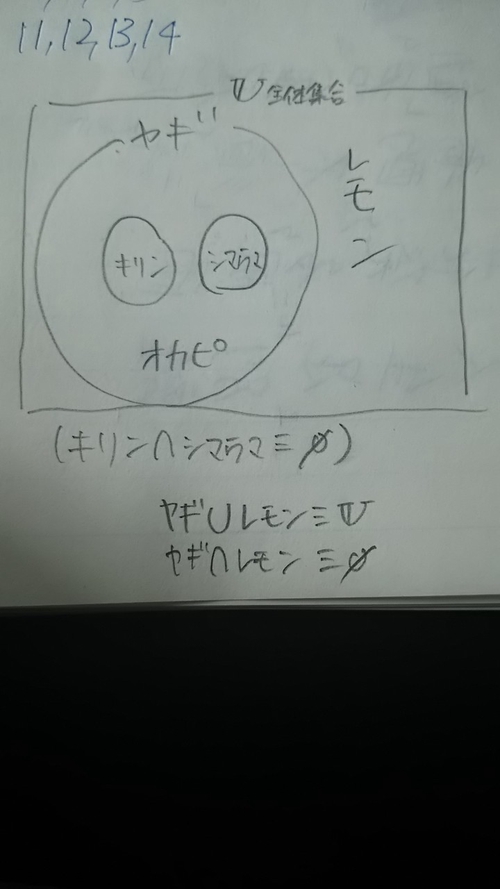 11,12,13,14
U 全体集合
ヤギ
レモン
キリン
シマウマ
オカピ
(キリン∩シマウマ≡∅)
ヤギ∪レモン≡U
ヤギ∩レモン≡∅